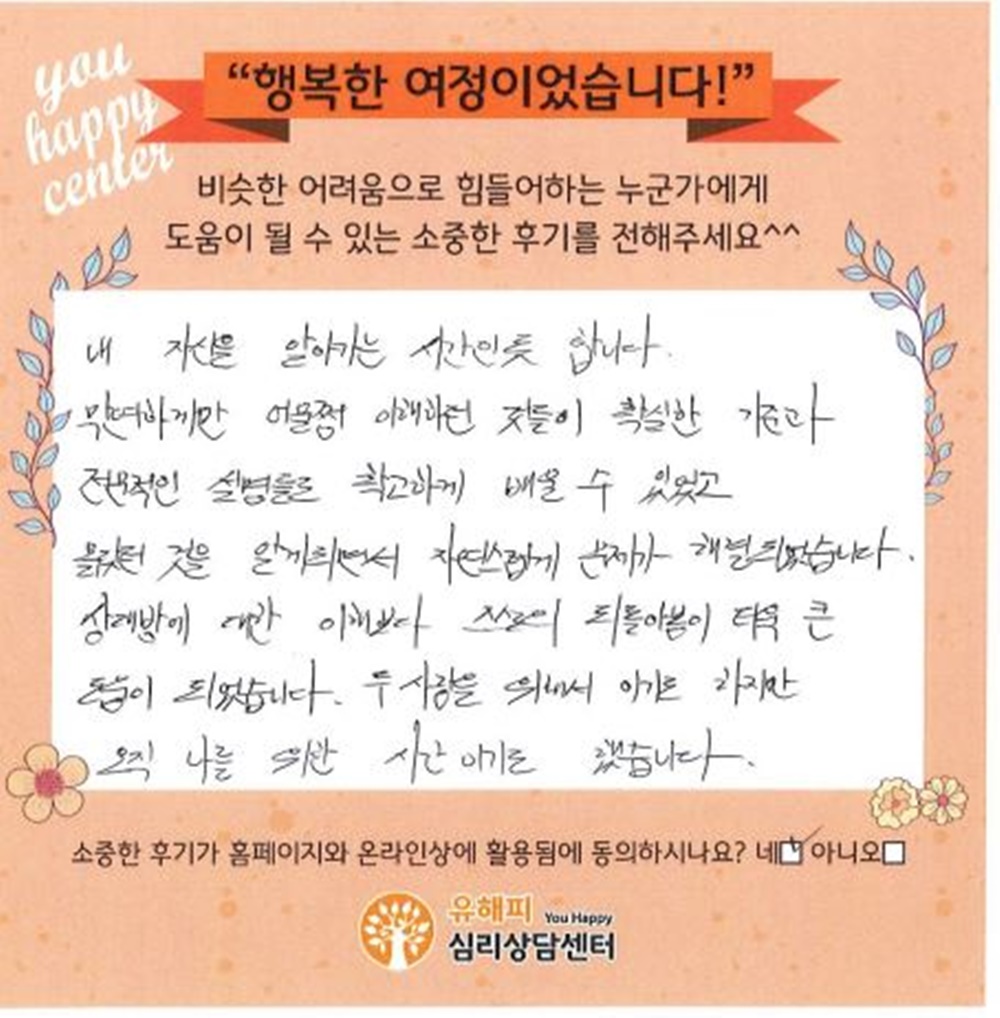 you
happy
center
“행복한 여정이었습니다!”
비슷한 어려움으로 힘들어하는 누군가에게
도움이 될 수 있는 소중한 후기를 전해주세요^^
내 자신을 알아가는 시간인듯 합니다.
막연하게만 어물쩡 이해하던 것들이 확실한 기준과
전문적인 설명들로 확고하게 배울 수 있었고
몰랐던 것을 알게되면서 자연스럽게 문제가 해결되었습니다.
상대방에 대한 이해보다 스스로의 되돌아봄이 더욱 큰
도움이 되었습니다. 두 사람을 위해서 이기도 하지만
오직 나를 위한 시간 이기도 했습니다.
소중한 후기가 홈페이지와 온라인상에 활용됨에 동의하시나요? 네 아니오
유해피 You Happy
심리상담센터